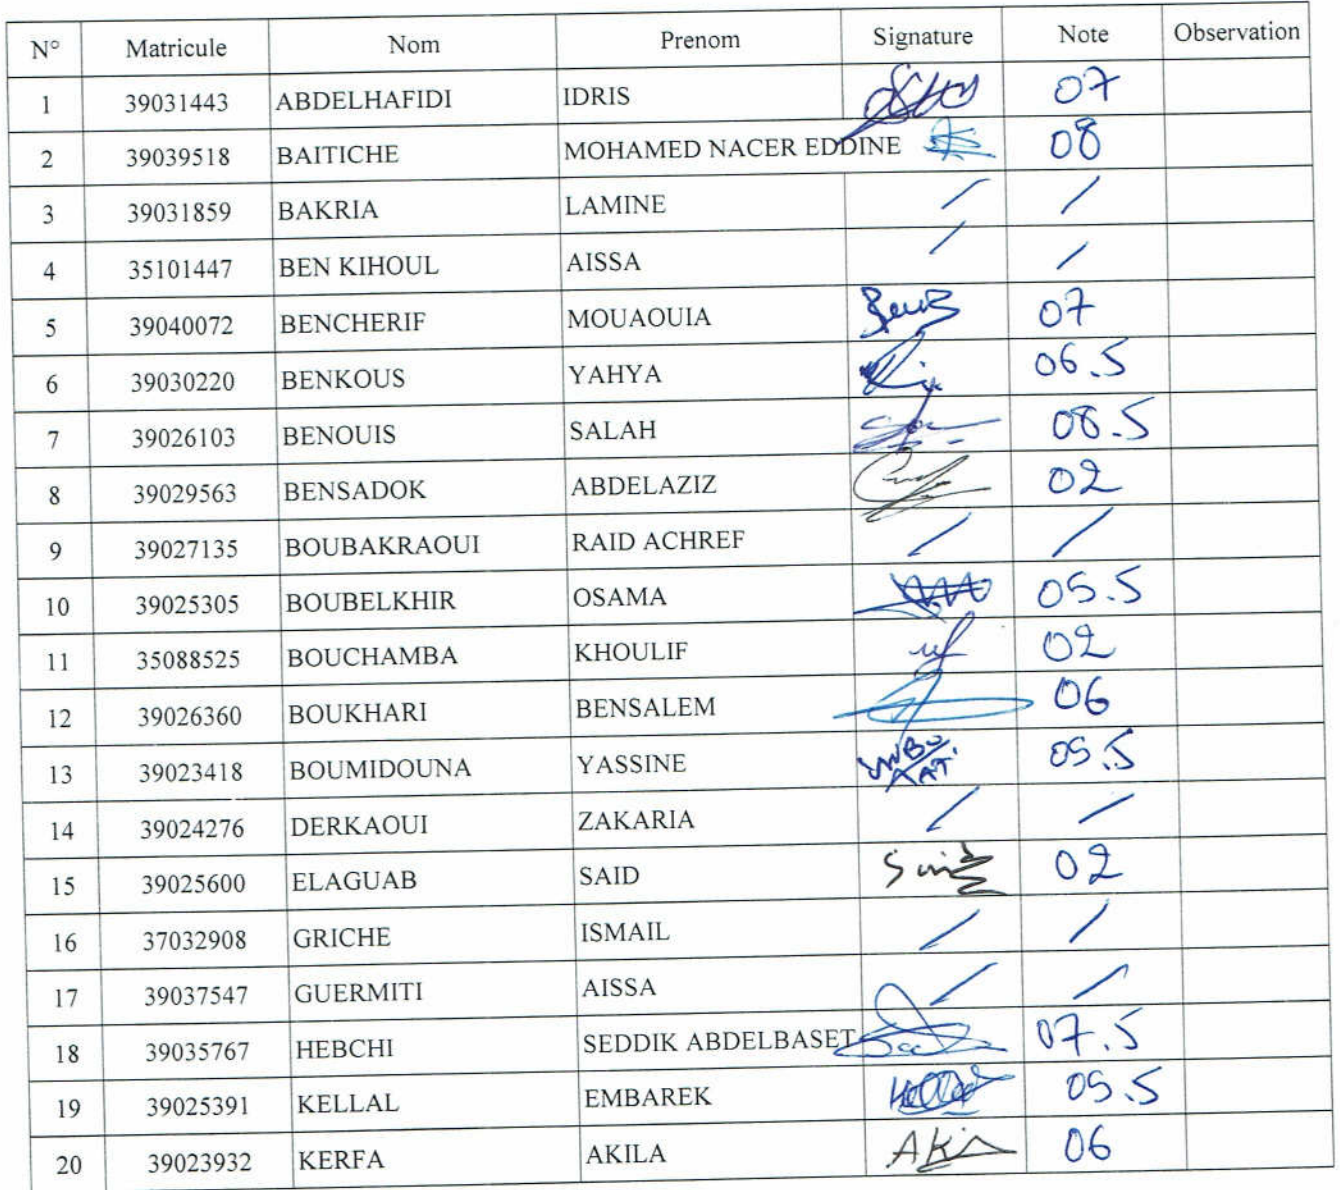 N° Matricule Nom Prenom Signature Note Observation
1 39031443 ABDELHAFIDI IDRIS 07
2 39039518 BAITICHE MOHAMED NACER EDDINE 08
3 39031859 BAKRIA LAMINE / /
4 35101447 BEN KIHOUL AISSA / /
5 39040072 BENCHERIF MOUAOUIA 07
6 39030220 BENKOUS YAHYA 06.5
7 39026103 BENOUIS SALAH 08.5
8 39029563 BENSADOK ABDELAZIZ 02
9 39027135 BOUBAKRAOUI RAID ACHREF / /
10 39025305 BOUBELKHIR OSAMA 05.5
11 35088525 BOUCHAMBA KHOULIF 02
12 39026360 BOUKHARI BENSALEM 06
13 39023418 BOUMIDOUNA YASSINE 05.5
14 39024276 DERKAOUI ZAKARIA / /
15 39025600 ELAGUAB SAID 02
16 37032908 GRICHE ISMAIL / /
17 39037547 GUERMITI AISSA / /
18 39035767 HEBCHI SEDDIK ABDELBASET 07.5
19 39025391 KELLAL EMBAREK 05.5
20 39023932 KERFA AKILA 06